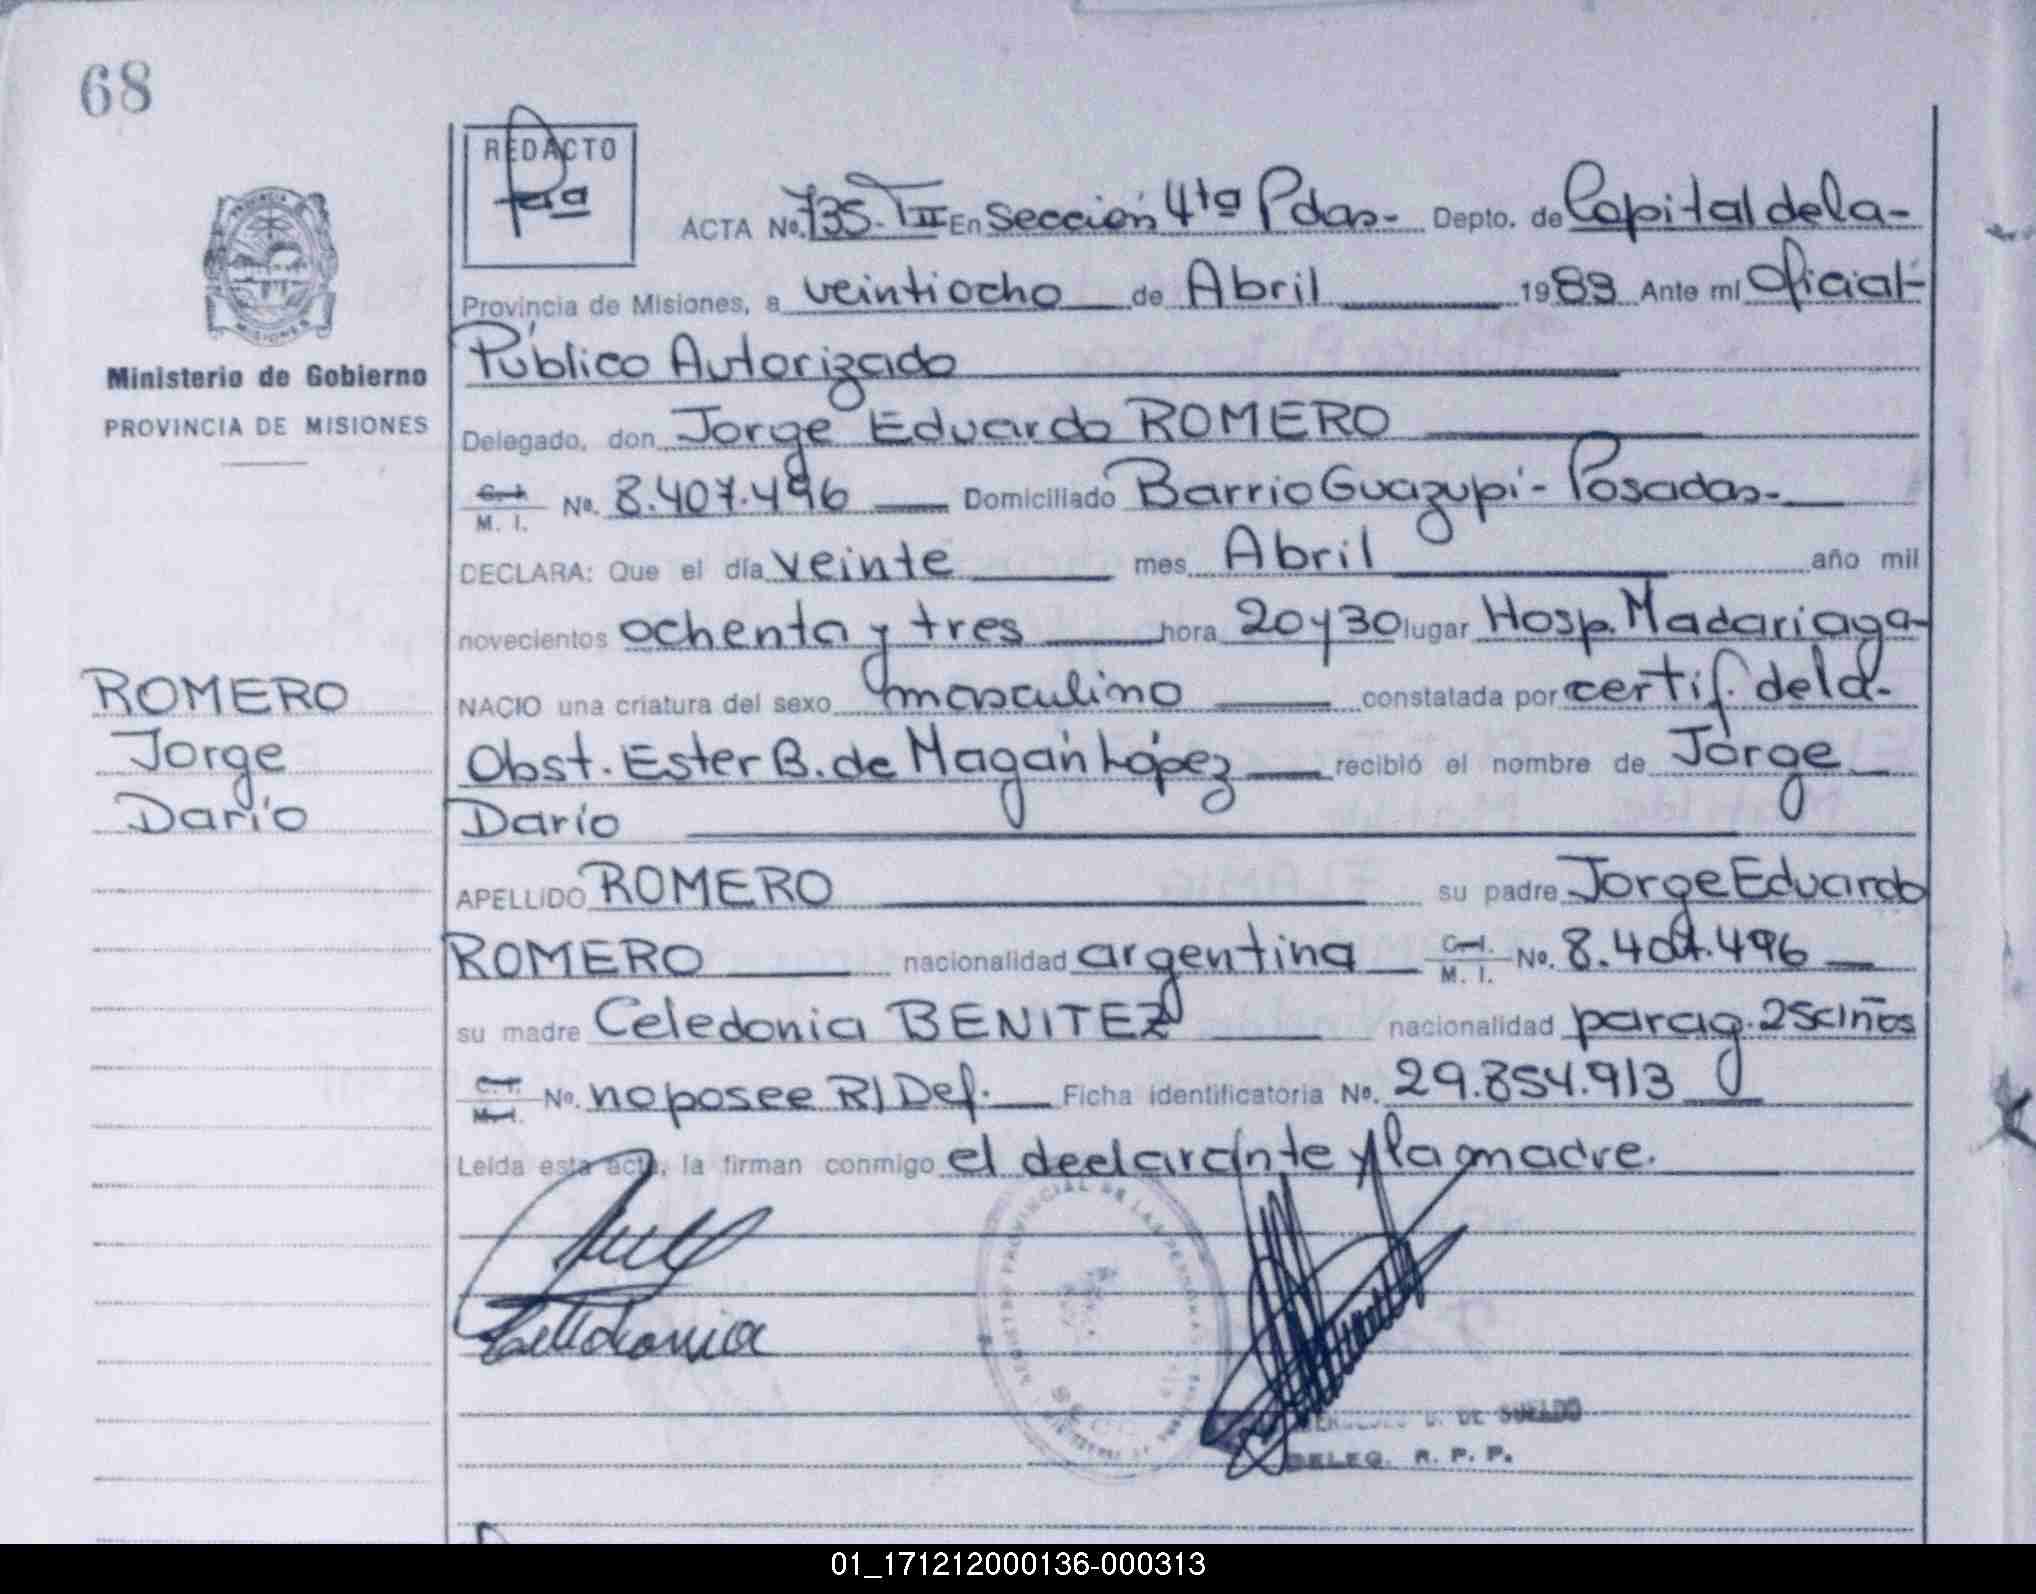 68
REDACTO
PROVINCIA
MISIONES
Ministerio de Gobierno
PROVINCIA DE MISIONES
ACTA No. 735-TII En Sección 4ta Pdas- Depto. de Capital de la-
Provincia de Misiones, a veintiocho de Abril 1983 Ante mí Oficial-
Público Autorizado
Delegado, don Jorge Eduardo ROMERO
C. I. M. I. No. 8.407.496 Domiciliado Barrio Guazupí- Posadas-
DECLARA: Que el día veinte mes Abril año mil
novecientos ochenta y tres hora 20 y 30 lugar Hosp. Madariaga-
NACIO una criatura del sexo masculino constatada por certif. de la-
Obst. Ester B. de Magán López recibió el nombre de Jorge
Darío
ROMERO
Jorge
Darío
APELLIDO ROMERO su padre Jorge Eduardo
ROMERO nacionalidad argentina C. I. M. I. No. 8.407.496
su madre Celedonia BENITEZ nacionalidad parag. 25 años
C. I. M. I. No. no posee R/Def. Ficha identificatoria No. 29.854.913
Leída esta acta, la firman conmigo el declarante y la madre.
Celedonia
D. DE SUELDO
DELEG. R. P. P.
01_171212000136-000313